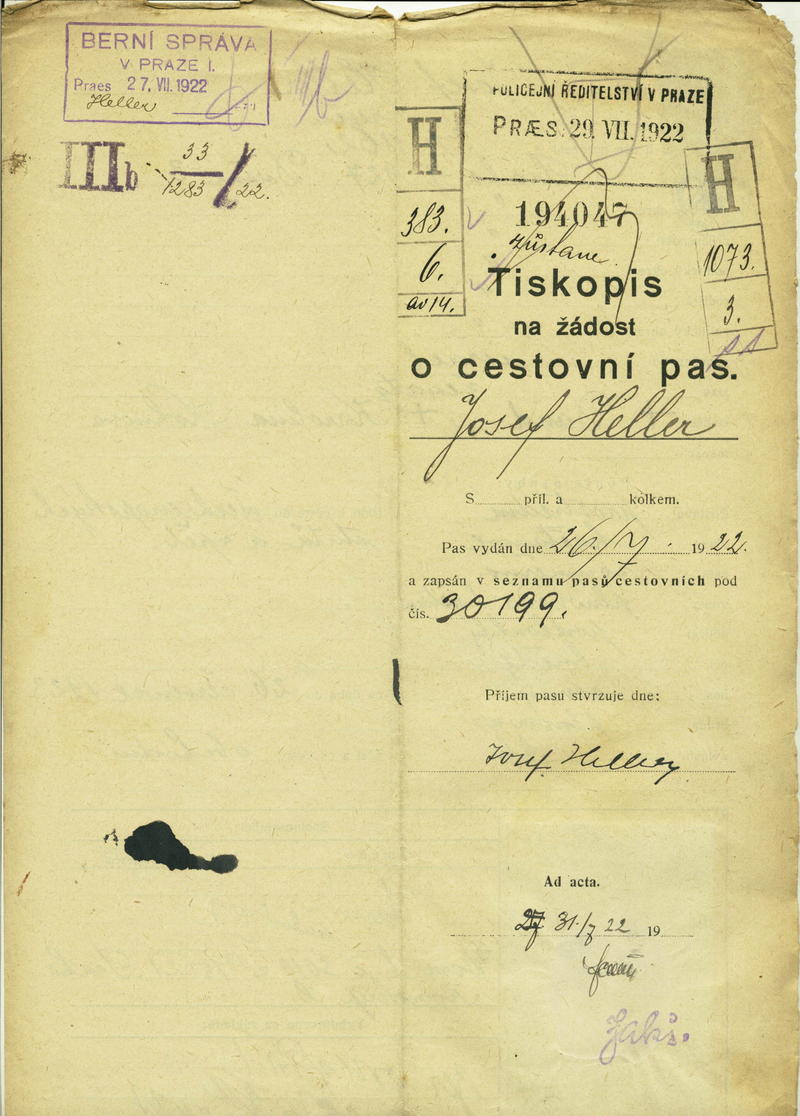 BERNÍ SPRÁVA
V PRAZE I.
Praes 27. VII. 1922
Heller
IIIb 33/1283/22.
POLICEJNÍ ŘEDITELSTVÍ V PRAZE
PRÆS. 29. VII. 1922
H
383.
6.
av 14.
H
1073.
3.
194047
zůstane
Tiskopis
na žádost
o cestovní pas.
Josef Heller
S příl. a kolkem.
Pas vydán dne 26./7. 1922.
a zapsán v seznamu pasů cestovních pod
čís. 30199.
Příjem pasu stvrzuje dne:
Josef Heller
Ad acta.
31./7 22 19